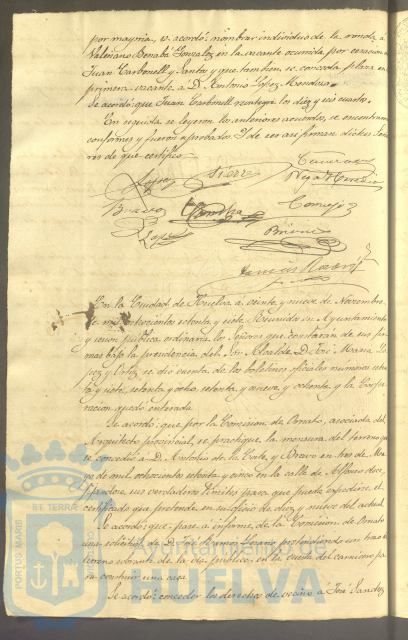 por mayoria, se acordó: nombrar individuo de la ronda a
Valeriano Benabá Gonzalez en la vacante ocurrida por cesación de
Juan Carbonell y Santos y que tambien se conceda plaza en
primera vacante á D. Antonio Lopez Mendez.
Se acordó que Juan Carbonell reintegre los diez y seis cuartos.
En seguida se leyeron los anteriores acuerdos, se encontraron
conformes y fueron aprobados. Y de ser asi firman dichos Seño-
res de que certifico.
Lopez
Sierra
Vega
Bravo
Cornejo
Lopez
En la Ciudad de Huelva a veinte y nueve de Noviembre
de mil ochocientos setenta y siete Reunido su Ayuntamiento
en sesion pública ordinaria los Señores que constarán de sus fir-
mas bajo la presidencia del Sr. Alcalde D. José Maria Lo-
pez y Ortiz, se dió cuenta de los boletines oficiales numeros seten-
ta y siete, setenta y ocho, setenta y nueve y ochenta y la Corpo-
ración quedó enterada.
Se acordó: que por la Comision de Ornato, asociada del
Arquitecto provincial, se practique la mensura del terreno que
se concedió a D. Antonio de la Corte y Bravo en tres de Ma-
yo de mil ochocientos setenta y cinco en la calle de Alfonso doce
fijandose sus verdaderos limites para que pueda expedirse el
certificado que pretende en su oficio de diez y nueve del actual.
Se acordó: que pase a informe de la Comision de Ornato
una solicitud de D. José Ramon Lozano pretendiendo un trozo de
terreno sobrante de la via pública en la cuesta del carnicero pa-
ra construir una casa.
Se acordó: conceder los derechos de vecino á José Sanchez
ST. TERRÆ
PORTUS MARIS
CUSTODIO
Ayuntamiento de
HUELVA